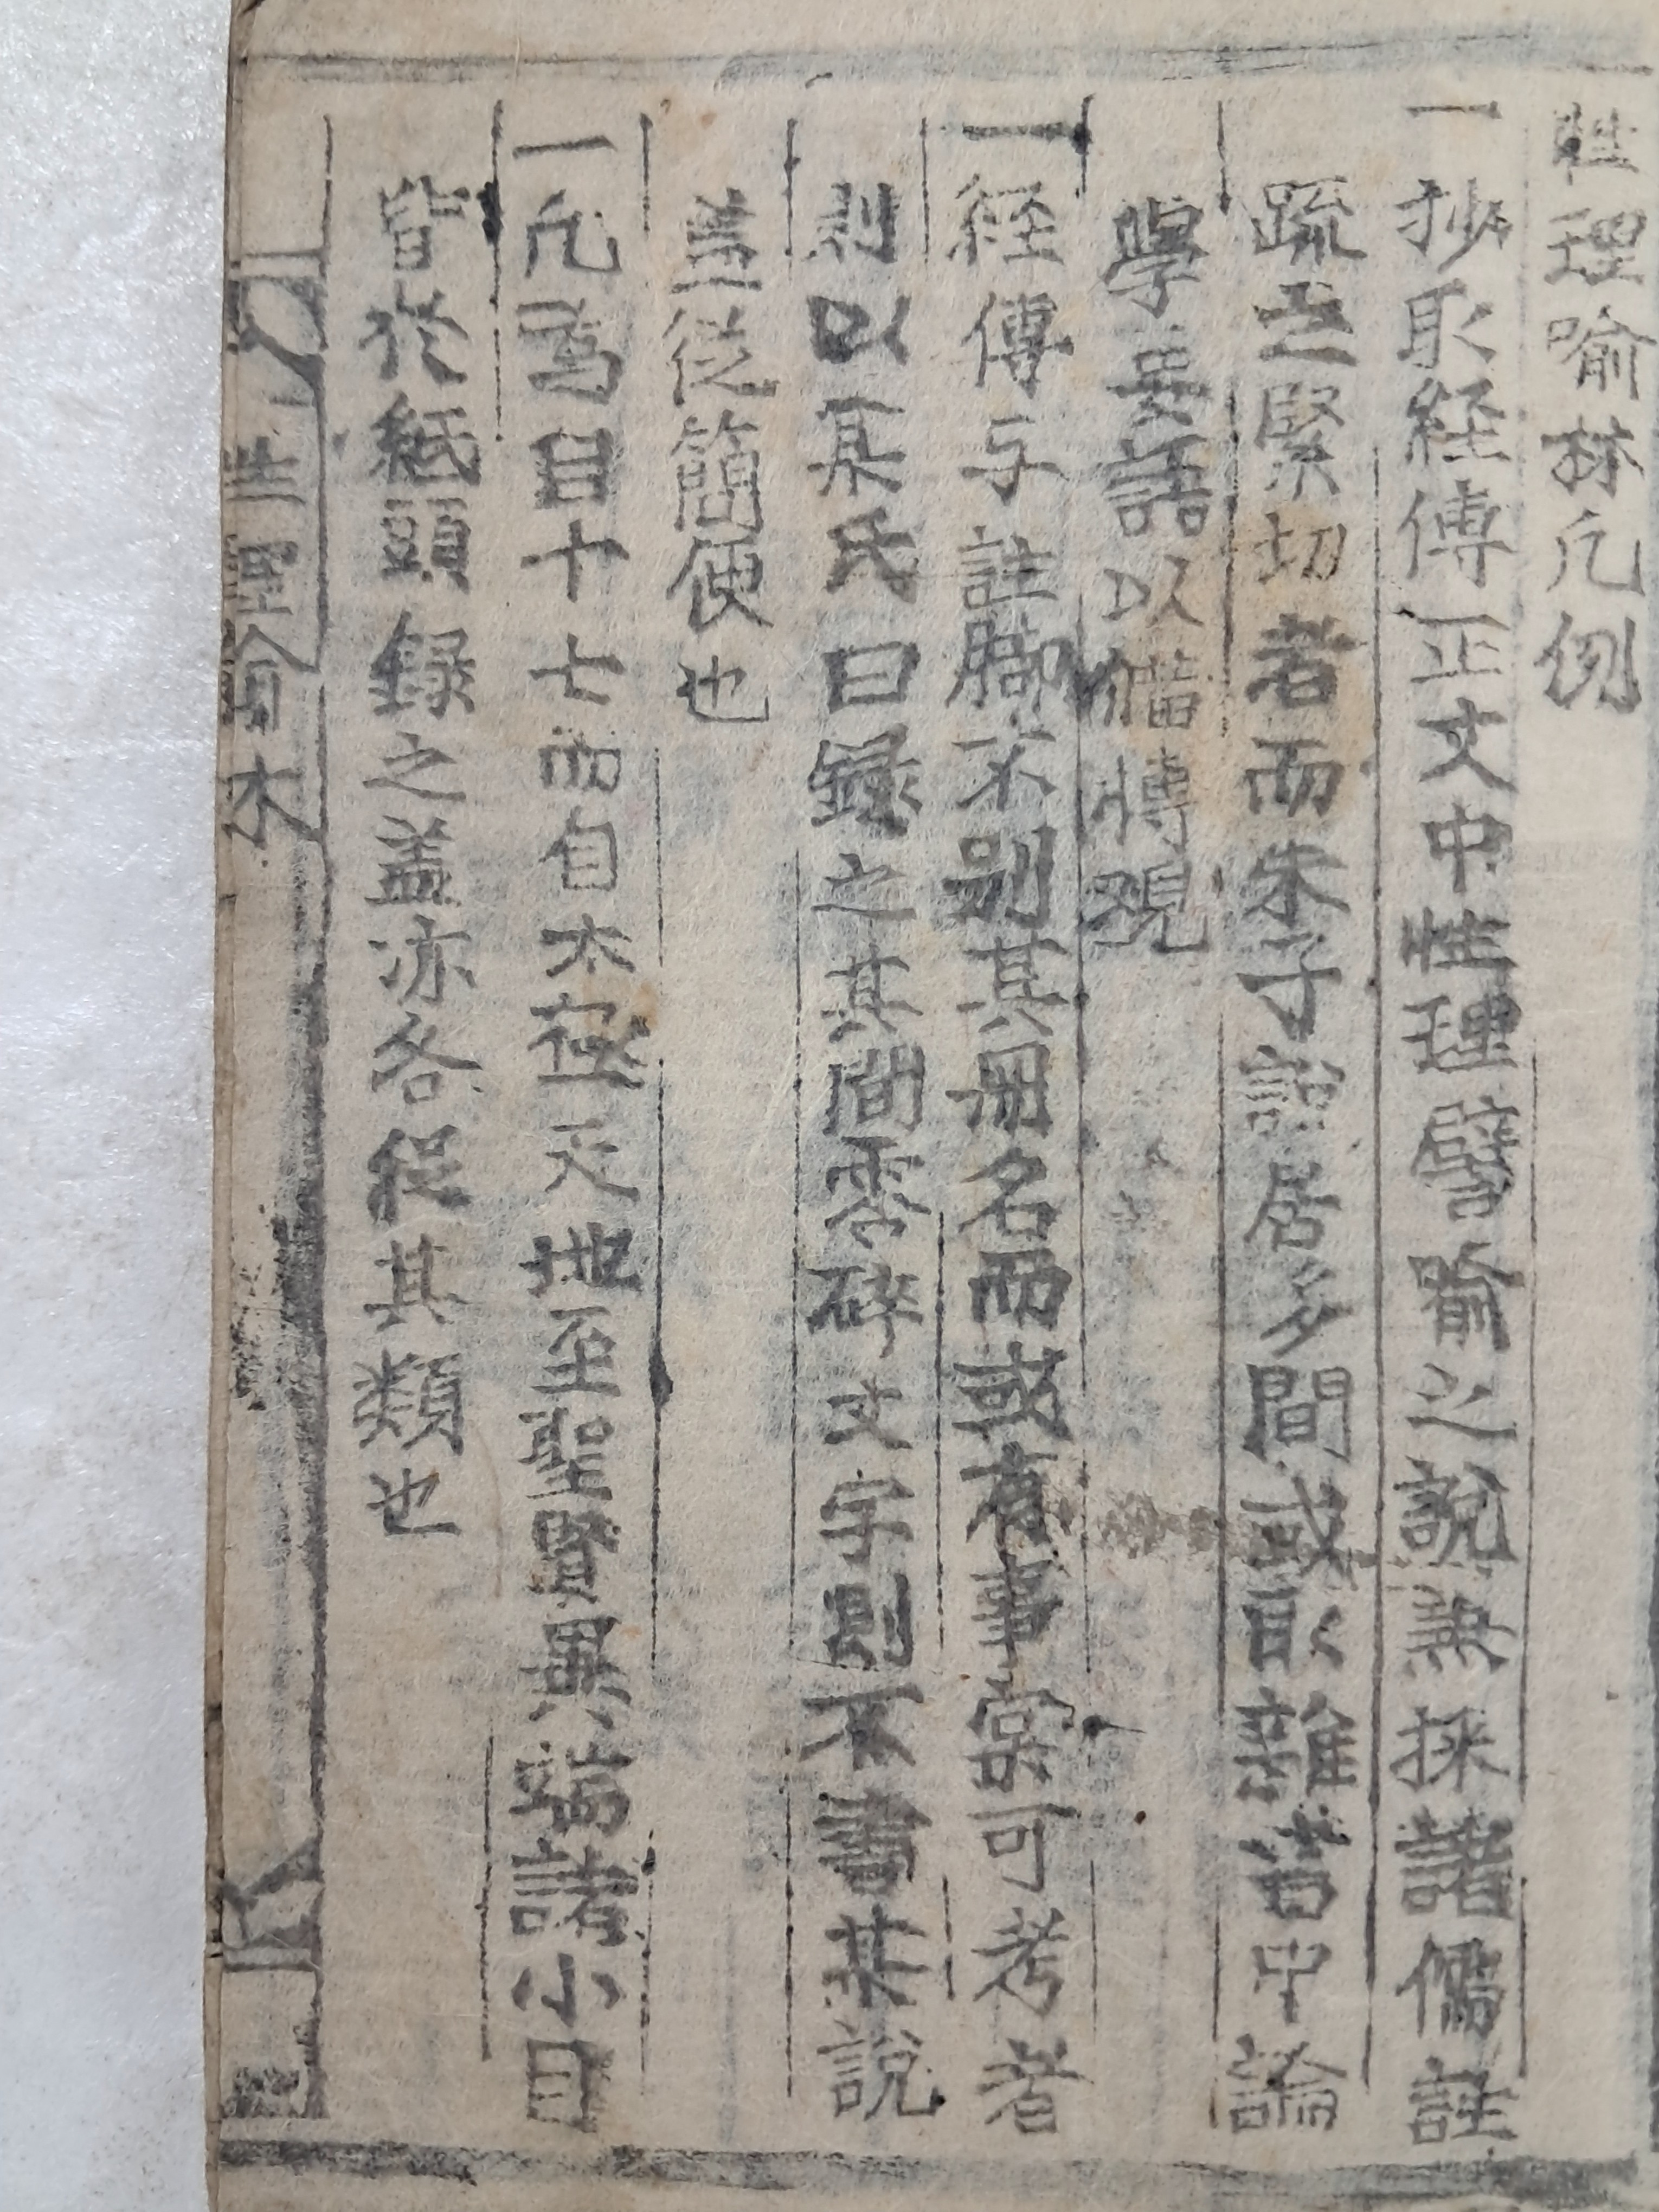 性理喻林凡例
一抄取経傳正文中性理譬喻之說兼採諸儒註
疏之緊切者而朱子說居多間或取雜著中論
學要語以備博观
一経傳与註脚不别其册名而或有事宲可考者
則以某氏曰録之其間零碎文字則不書某說
盖従簡便也
一凡爲目十七而自太極天地至聖賢異端諸小目
皆於紙頭録之盖亦各従其類也
性理喻林